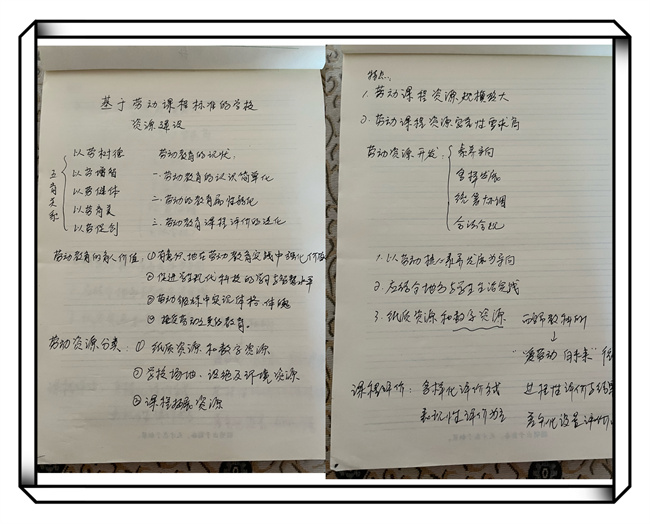 基于劳动课程标准的学校
资源建设
五育关系
以劳树德
以劳增智
以劳健体
以劳育美
以劳促创
劳动教育的现状:
一.劳动教育的认识简单化
二.劳动的教育
三.劳动教育课程评价的
劳动教育的育人价值:①有意识地在劳动教育实践中强化价值
②促进学生现代科技的学习与智慧水平
③劳动锻炼中实现体格、体魄
④接受劳动之美的教育。
劳动资源分类:① 纸质资源和数字资源
② 学校场地、设施及环境资源
③ 课程拓展资源
特点:
1.劳动课程资源规模较大
2.劳动课程资源
劳动资源开发:
素养导向
多样
统筹协调
合法合规
1.以劳动核心素养发展为导向
2.应结合地方与学生生活实践
3.纸质资源和数字资源
↓
“爱劳动 向未来”
课程评价: 多样化评价方式 过程性评价与结果
表现性评价为主 评价